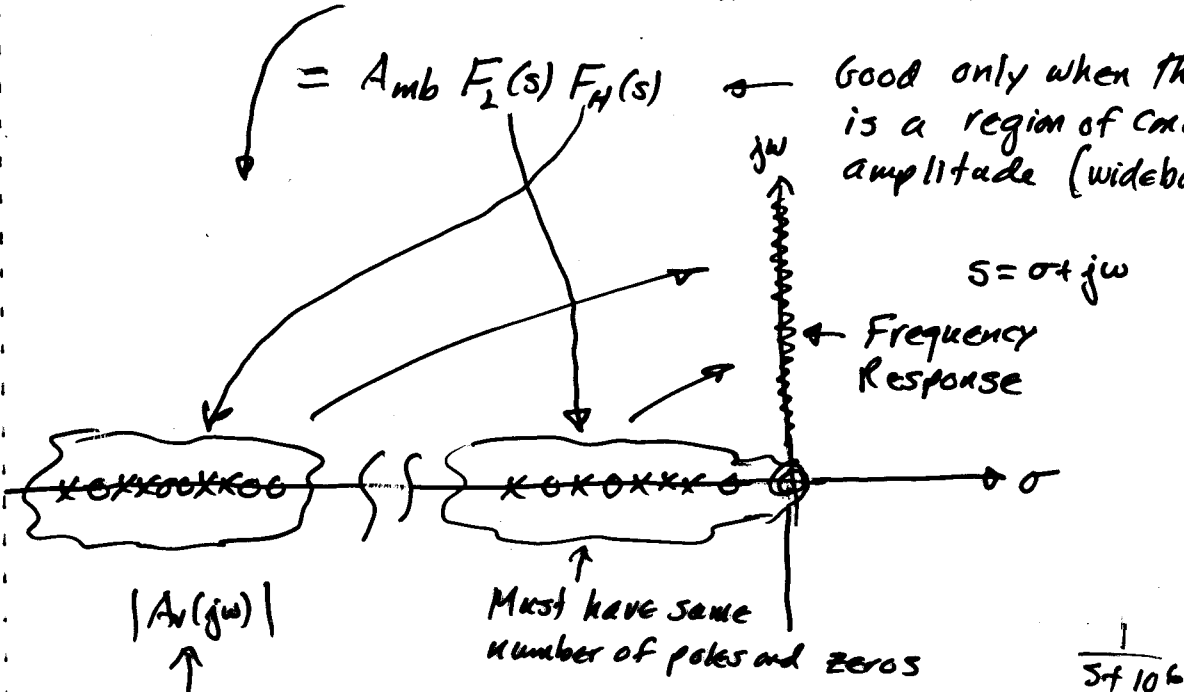 = Amb F_L(s) F_H(s)
Good only when th
is a region of con
amplitude (wideba
jω
s = σ + jω
Frequency
Response
x o x x o o x x o o
x o x o x x x o
σ
|Av(jω)|
Must have same
number of poles and zeros
1
s + 10^6